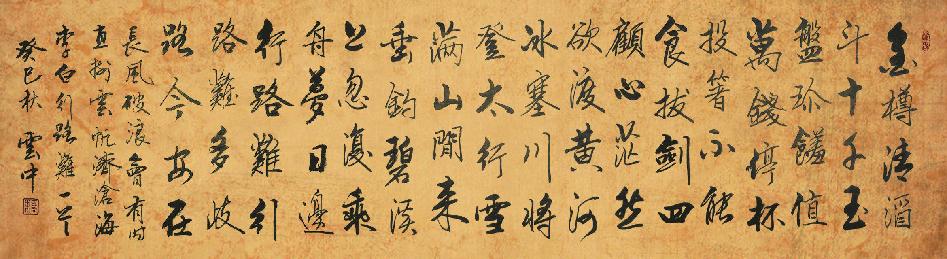 金樽清酒
斗十千玉
盤珍饈值
萬錢停杯
投箸不能
食拔劍四
顧心茫然
欲渡黃河
冰塞川將
登太行雪
滿山閒來
垂釣碧溪
上忽復乘
舟夢日邊
行路難行
路難多歧
路今安在
長風破浪會有時
直掛雲帆濟滄海
李白行路難一首
癸巳秋 雲中